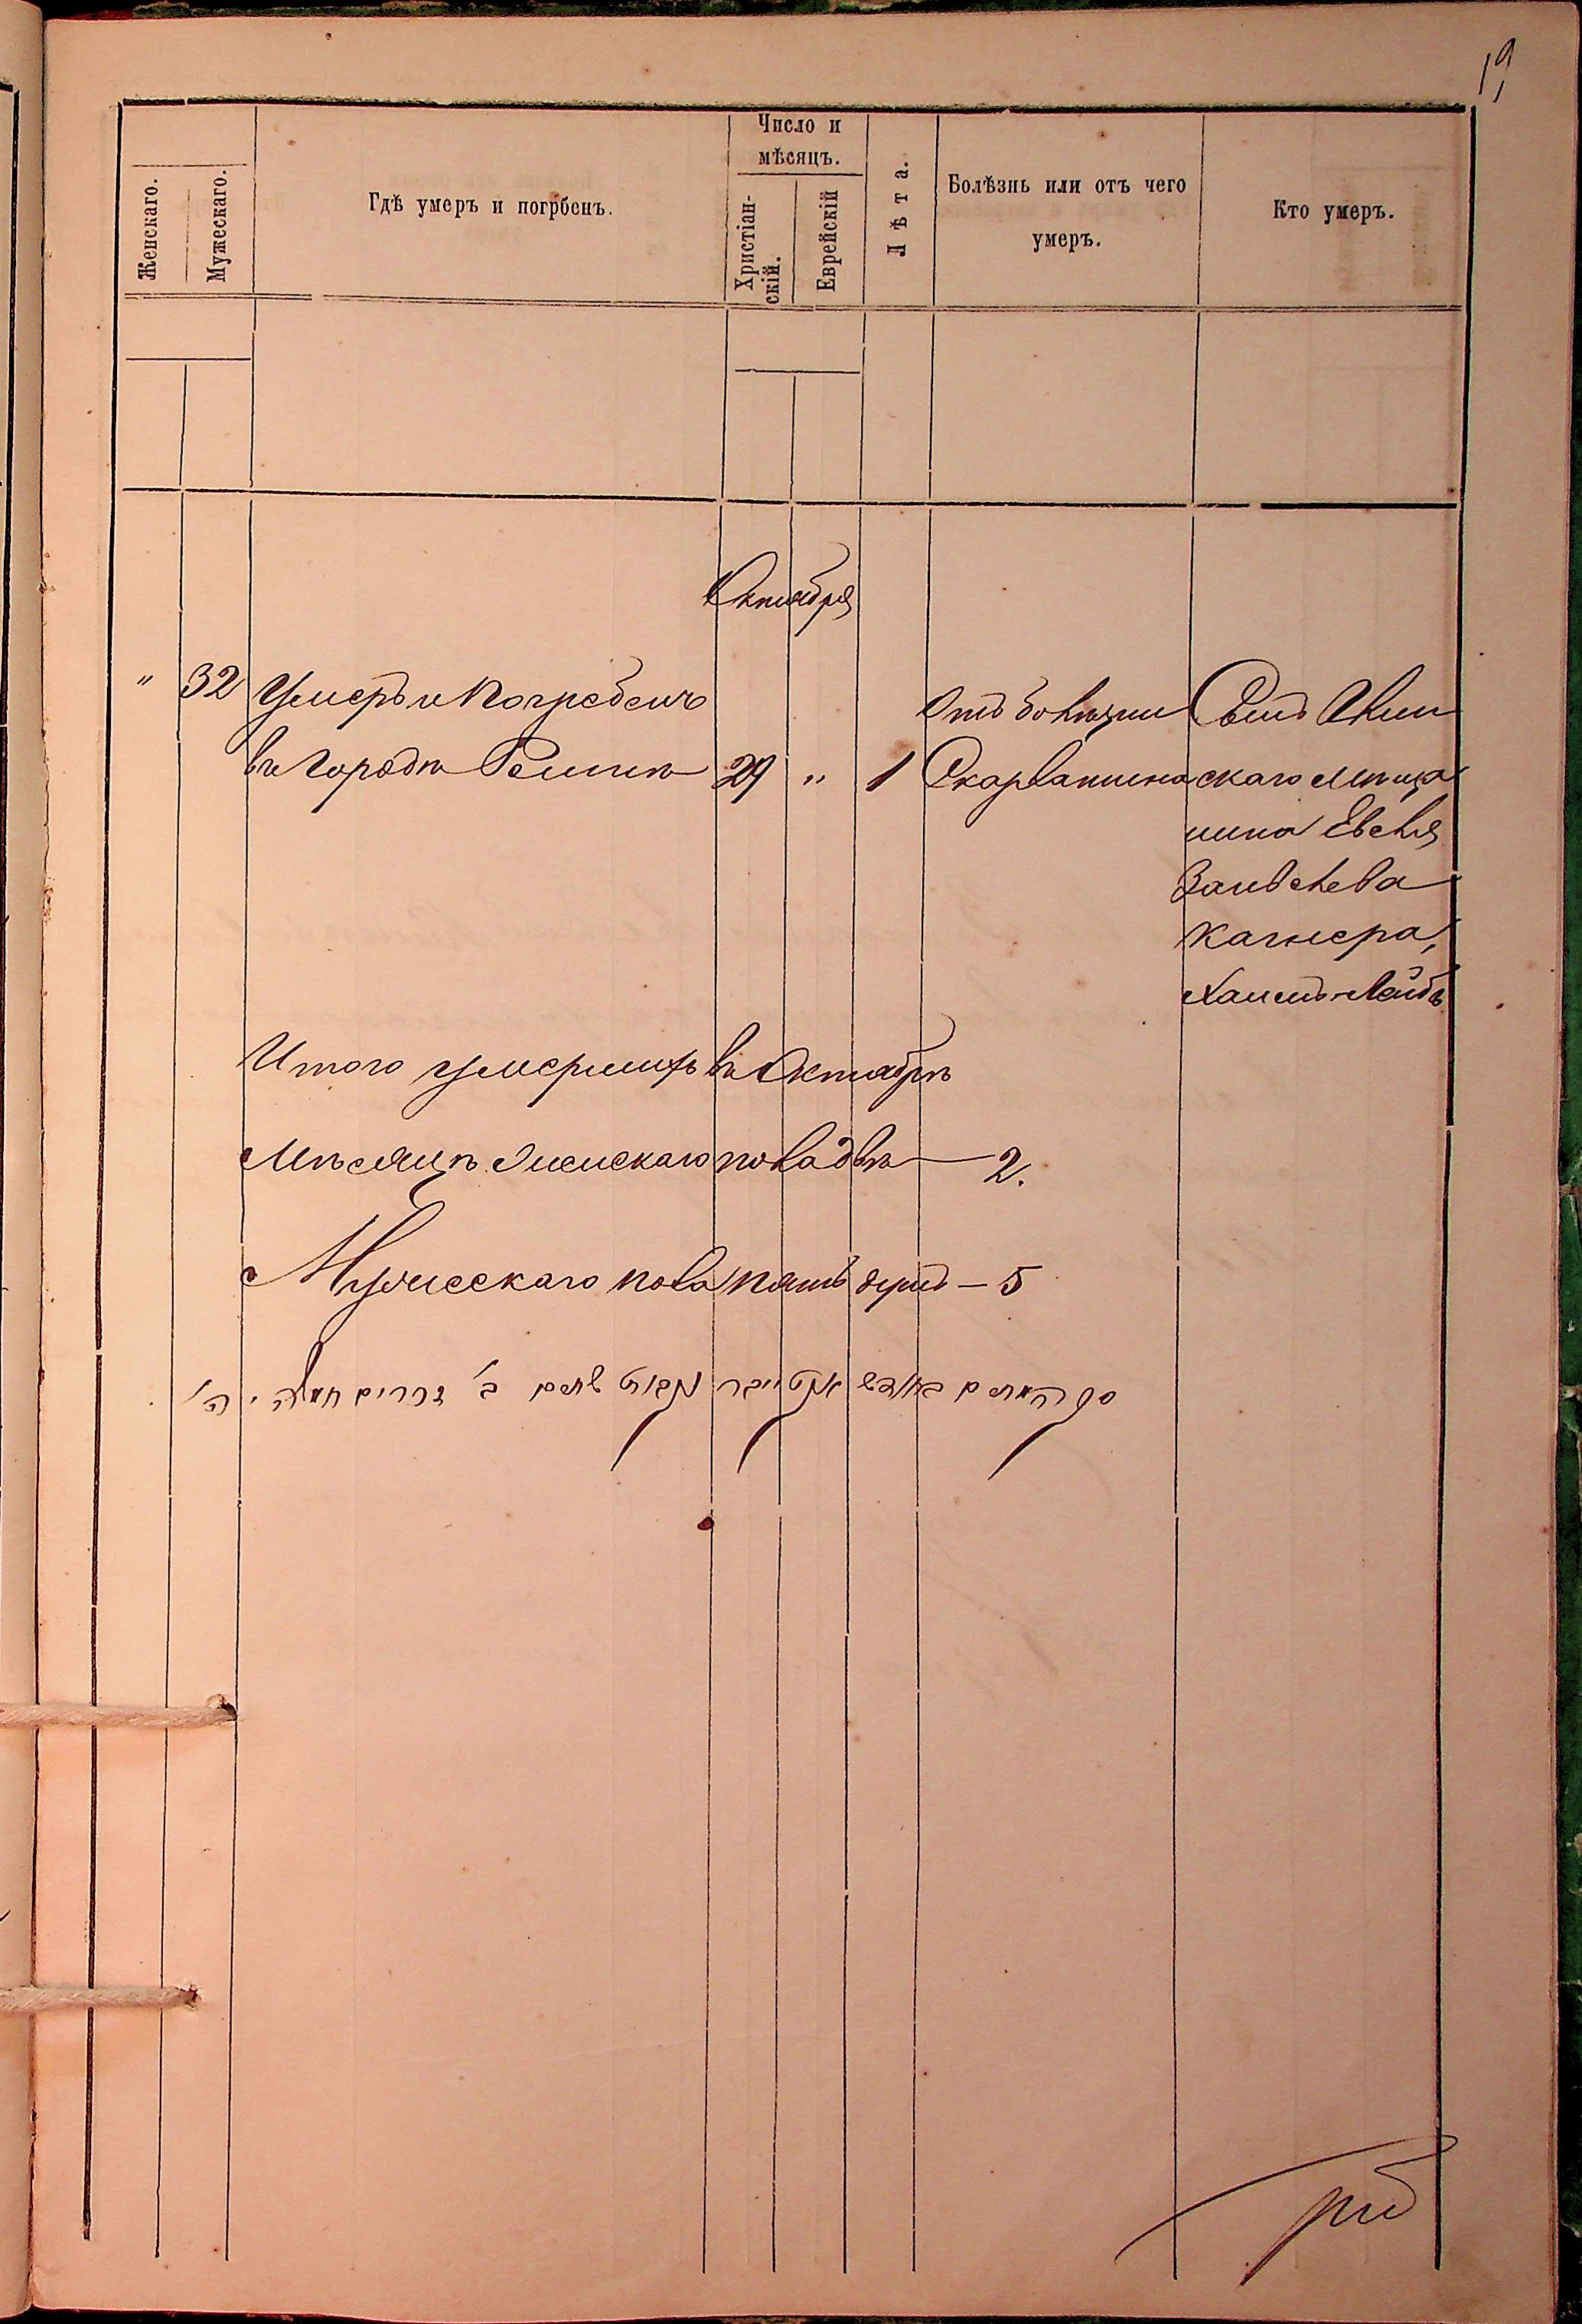 19
Женскаго.
Мужескаго.
Гдѣ умеръ и погрбенъ.
Число и
мѣсяцъ.
Христіан-
скій.
Еврейскій
Лѣта.
Болѣзнь или отъ чего
умеръ.
Кто умеръ.
Октября
" 32 Умеръ и Погребенъ
въ городѣ Рени 29 " 1
Отъ болѣзни
Скарлатина
Сынъ
скаго мѣща
нина Евселя
Зайвелева
Качнера,
Хаимъ-Лейбъ
Итого умершихъ въ Октябрѣ
Мѣсяцѣ Женскаго пола двѣ — 2.
Мужескаго пола пять душъ — 5